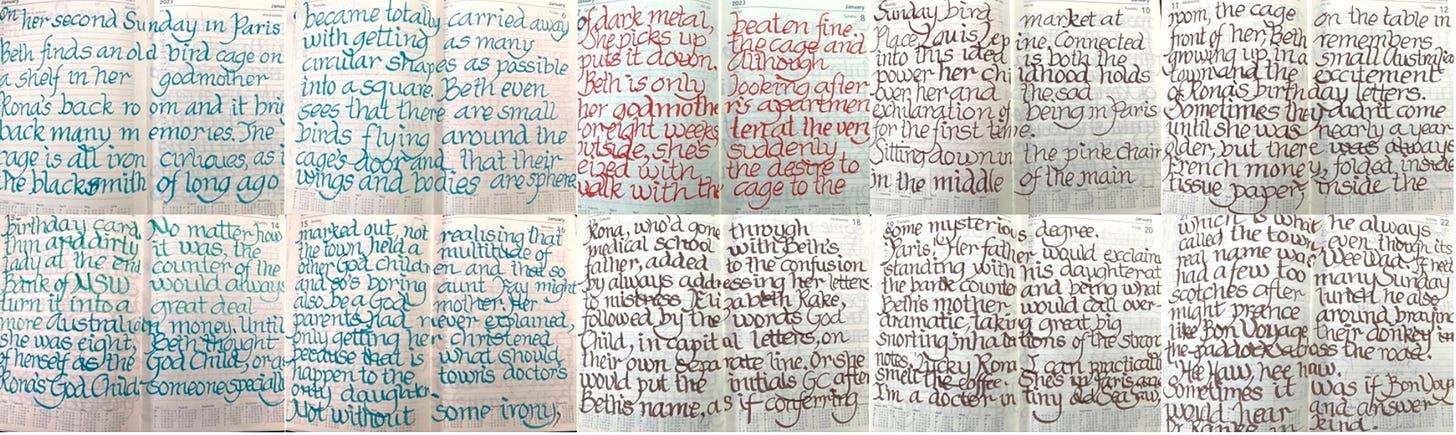 On her second Sunday in Paris
Beth finds an old bird cage on
a shelf in her godmother
Rona's back room and it brin
back many memories. The
cage is all iron cirliques, as i
the blacksmith of long ago
became totally carried away
with getting as many
circular shapes as possible
into a square. Beth even
sees that there are small
birds flying around the
cage's door and that their
wings and bodies are sphere
of dark metal, beaten fine.
She picks up the cage and
puts it down. Although
Beth is only looking after
her godmother's apartmen
for eight weeks at the very
outside, she's suddenly
eized with the desire to
walk with the cage to the
Sunday bird market at
Place Louis Lepine. Connected
into this idea is both the
power her childhood holds
over her and the sad
exhilaration of being in Paris
for the first time.
Sitting down in the pink chair
in the middle of the main
room, the cage on the table in
front of her, Beth remembers
growing up in a small Australia
town and the excitement
of Rona's birthday letters.
Sometimes they didn't come
until she was nearly a year
older, but there was always
French money, folded inside
tissue paper, inside the
birthday card. No matter how
thin and dirty it was, the
lady at the end counter of the
Bank of NSW would always
turn it into a great deal
more Australian money. Until
she was eight, Beth thought
of herself as the God Child, or as
Rona's God Child: someone speciall
marked out, not realising that
the town held a multitude of
other God children and that so
and so's boring aunt Fay might
also be a God mother. Her
parents had never explained,
only getting her christened
because that is what should
happen to the town's doctor's
only daughter.
Not without some irony,
Rona, who'd gone through
medical school with Beth's
father, added to the confusion
by always addressing her letters
to mistress Elizabeth Rake,
followed by the words God
Child, in capital letters, on
their own separate line. Or she
would put the initials GC after
Beth's name, as if conferring
some mysterious degree.
Paris! Her father would exclaim
standing with his daughter at
the bank counter and being what
Beth's mother would call over-
dramatic, taking great big
snorting inhalations of the strange
notes. Lucky Rona. I can practically
smell the coffee. She's in Paris and
I'm a doctor in tiny old Sea Row,
which is what he always
called the town, even though its
real name was Wee Waa. If he'd
had a few too many Sunday
scotches after lunch he also
might prance around braying
like Bon Voyage, their donkey in
the paddock across the road.
Hee Haw, hee haw.
Sometimes it was if Bon Voy
would hear and answer
Dr Rake in kind.